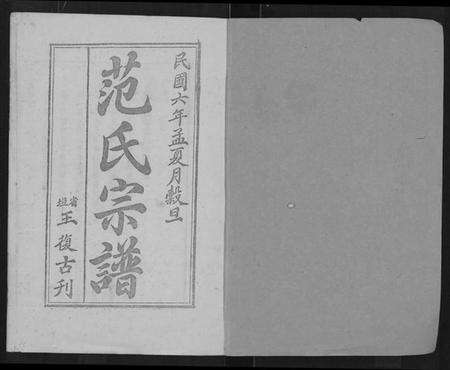 民國六年孟夏月榖旦
范氏宗譜
省垣王復古刊